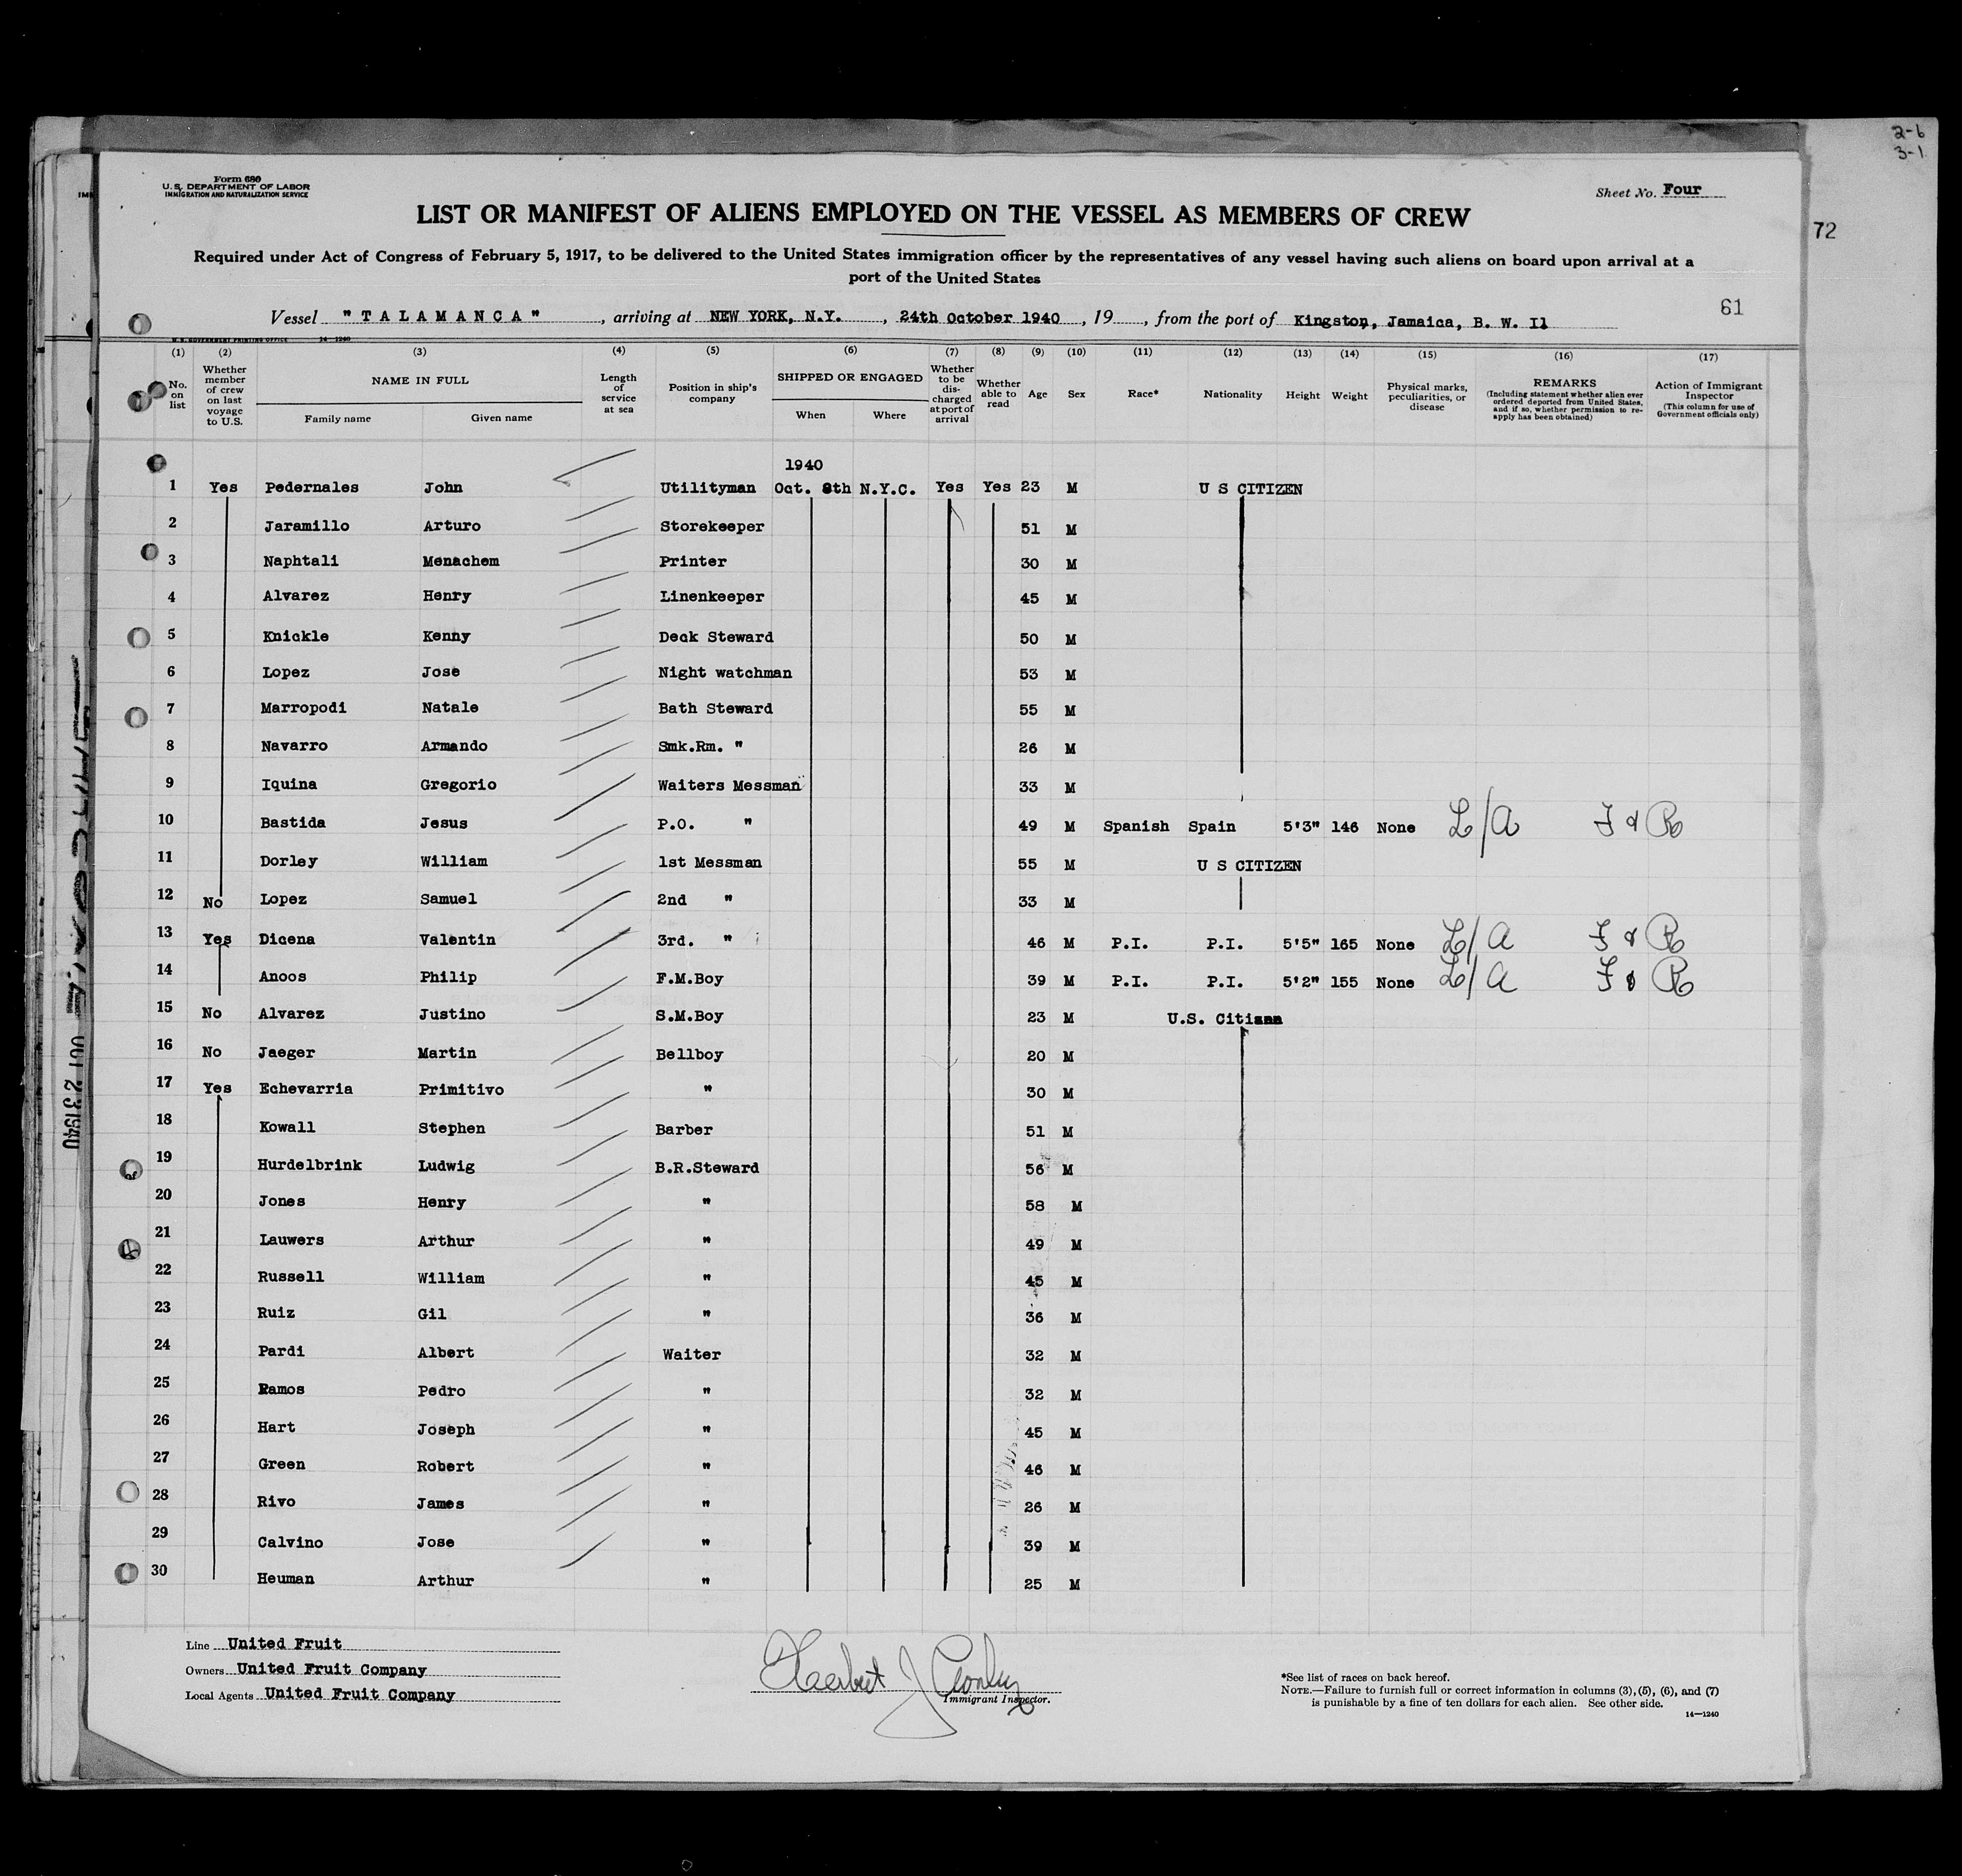 2-6
3-1
Form 680
U.S. DEPARTMENT OF LABOR
IMMIGRATION AND NATURALIZATION SERVICE
Sheet No. Four
LIST OR MANIFEST OF ALIENS EMPLOYED ON THE VESSEL AS MEMBERS OF CREW
72
Required under Act of Congress of February 5, 1917, to be delivered to the United States immigration officer by the representatives of any vessel having such aliens on board upon arrival at a
port of the United States
61
Vessel "TALAMANCA", arriving at NEW YORK, N.Y., 24th October 1940, 19, from the port of Kingston, Jamaica, B. W. Il
U.S. GOVERNMENT PRINTING OFFICE 14-1240
(1) (2) (3) (4) (5) (6) (7) (8) (9) (10) (11) (12) (13) (14) (15) (16) (17)
No. on list
Whether member of crew on last voyage to U.S.
NAME IN FULL
Family name Given name
Length of service at sea
Position in ship's company
SHIPPED OR ENGAGED
When Where
Whether to be discharged at port of arrival
Whether able to read
Age Sex Race* Nationality Height Weight
Physical marks, peculiarities, or disease
REMARKS
(Including statement whether alien ever ordered deported from United States, and if so, whether permission to reapply has been obtained)
Action of Immigrant Inspector
(This column for use of Government officials only)
1940
1 Yes Pedernales John Utilityman Oct. 8th N.Y.C. Yes Yes 23 M U S CITIZEN
2 Jaramillo Arturo Storekeeper 51 M
3 Naphtali Menachem Printer 30 M
4 Alvarez Henry Linenkeeper 45 M
5 Knickle Kenny Deck Steward 50 M
6 Lopez Jose Night watchman 53 M
7 Marropodi Natale Bath Steward 55 M
8 Navarro Armando Smk.Rm. " 26 M
9 Iquina Gregorio Waiters Messman 33 M
10 Bastida Jesus P.O. " 49 M Spanish Spain 5'3" 146 None L/A F & R
11 Dorley William 1st Messman 55 M U S CITIZEN
12 No Lopez Samuel 2nd " 33 M
13 Yes Dicena Valentin 3rd. " 46 M P.I. P.I. 5'5" 165 None L/A F & R
14 Anoos Philip F.M.Boy 39 M P.I. P.I. 5'2" 155 None L/A F & R
15 No Alvarez Justino S.M.Boy 23 M U.S. Citizen
16 No Jaeger Martin Bellboy 20 M
17 Yes Echevarria Primitivo " 30 M
18 Kowall Stephen Barber 51 M
19 Hurdelbrink Ludwig B.R.Steward 56 M
20 Jones Henry " 58 M
21 Lauwers Arthur " 49 M
22 Russell William " 45 M
23 Ruiz Gil " 36 M
24 Pardi Albert Waiter 32 M
25 Ramos Pedro " 32 M
26 Hart Joseph " 45 M
27 Green Robert " 46 M
28 Rivo James " 26 M
29 Calvino Jose " 39 M
30 Heuman Arthur " 25 M
Line United Fruit
Owners United Fruit Company
Local Agents United Fruit Company
Herbert J
Immigrant Inspector.
*See list of races on back hereof.
NOTE.—Failure to furnish full or correct information in columns (3), (5), (6), and (7)
is punishable by a fine of ten dollars for each alien. See other side.
14—1240
OCT 23 1940